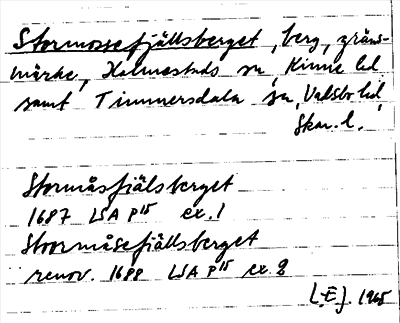 Stormossefjällsberget, berg, gräns-
märke, Holmestads sn, Kinne hd
samt Timmersdala sn, Valsbo hd,
Skar. l.
Stormåsfjälsberget
1687 LSA P15 ex. 1
Stormåsefjällsberget
renov. 1688 LSA P15 ex. 2
L.E.J. 1965